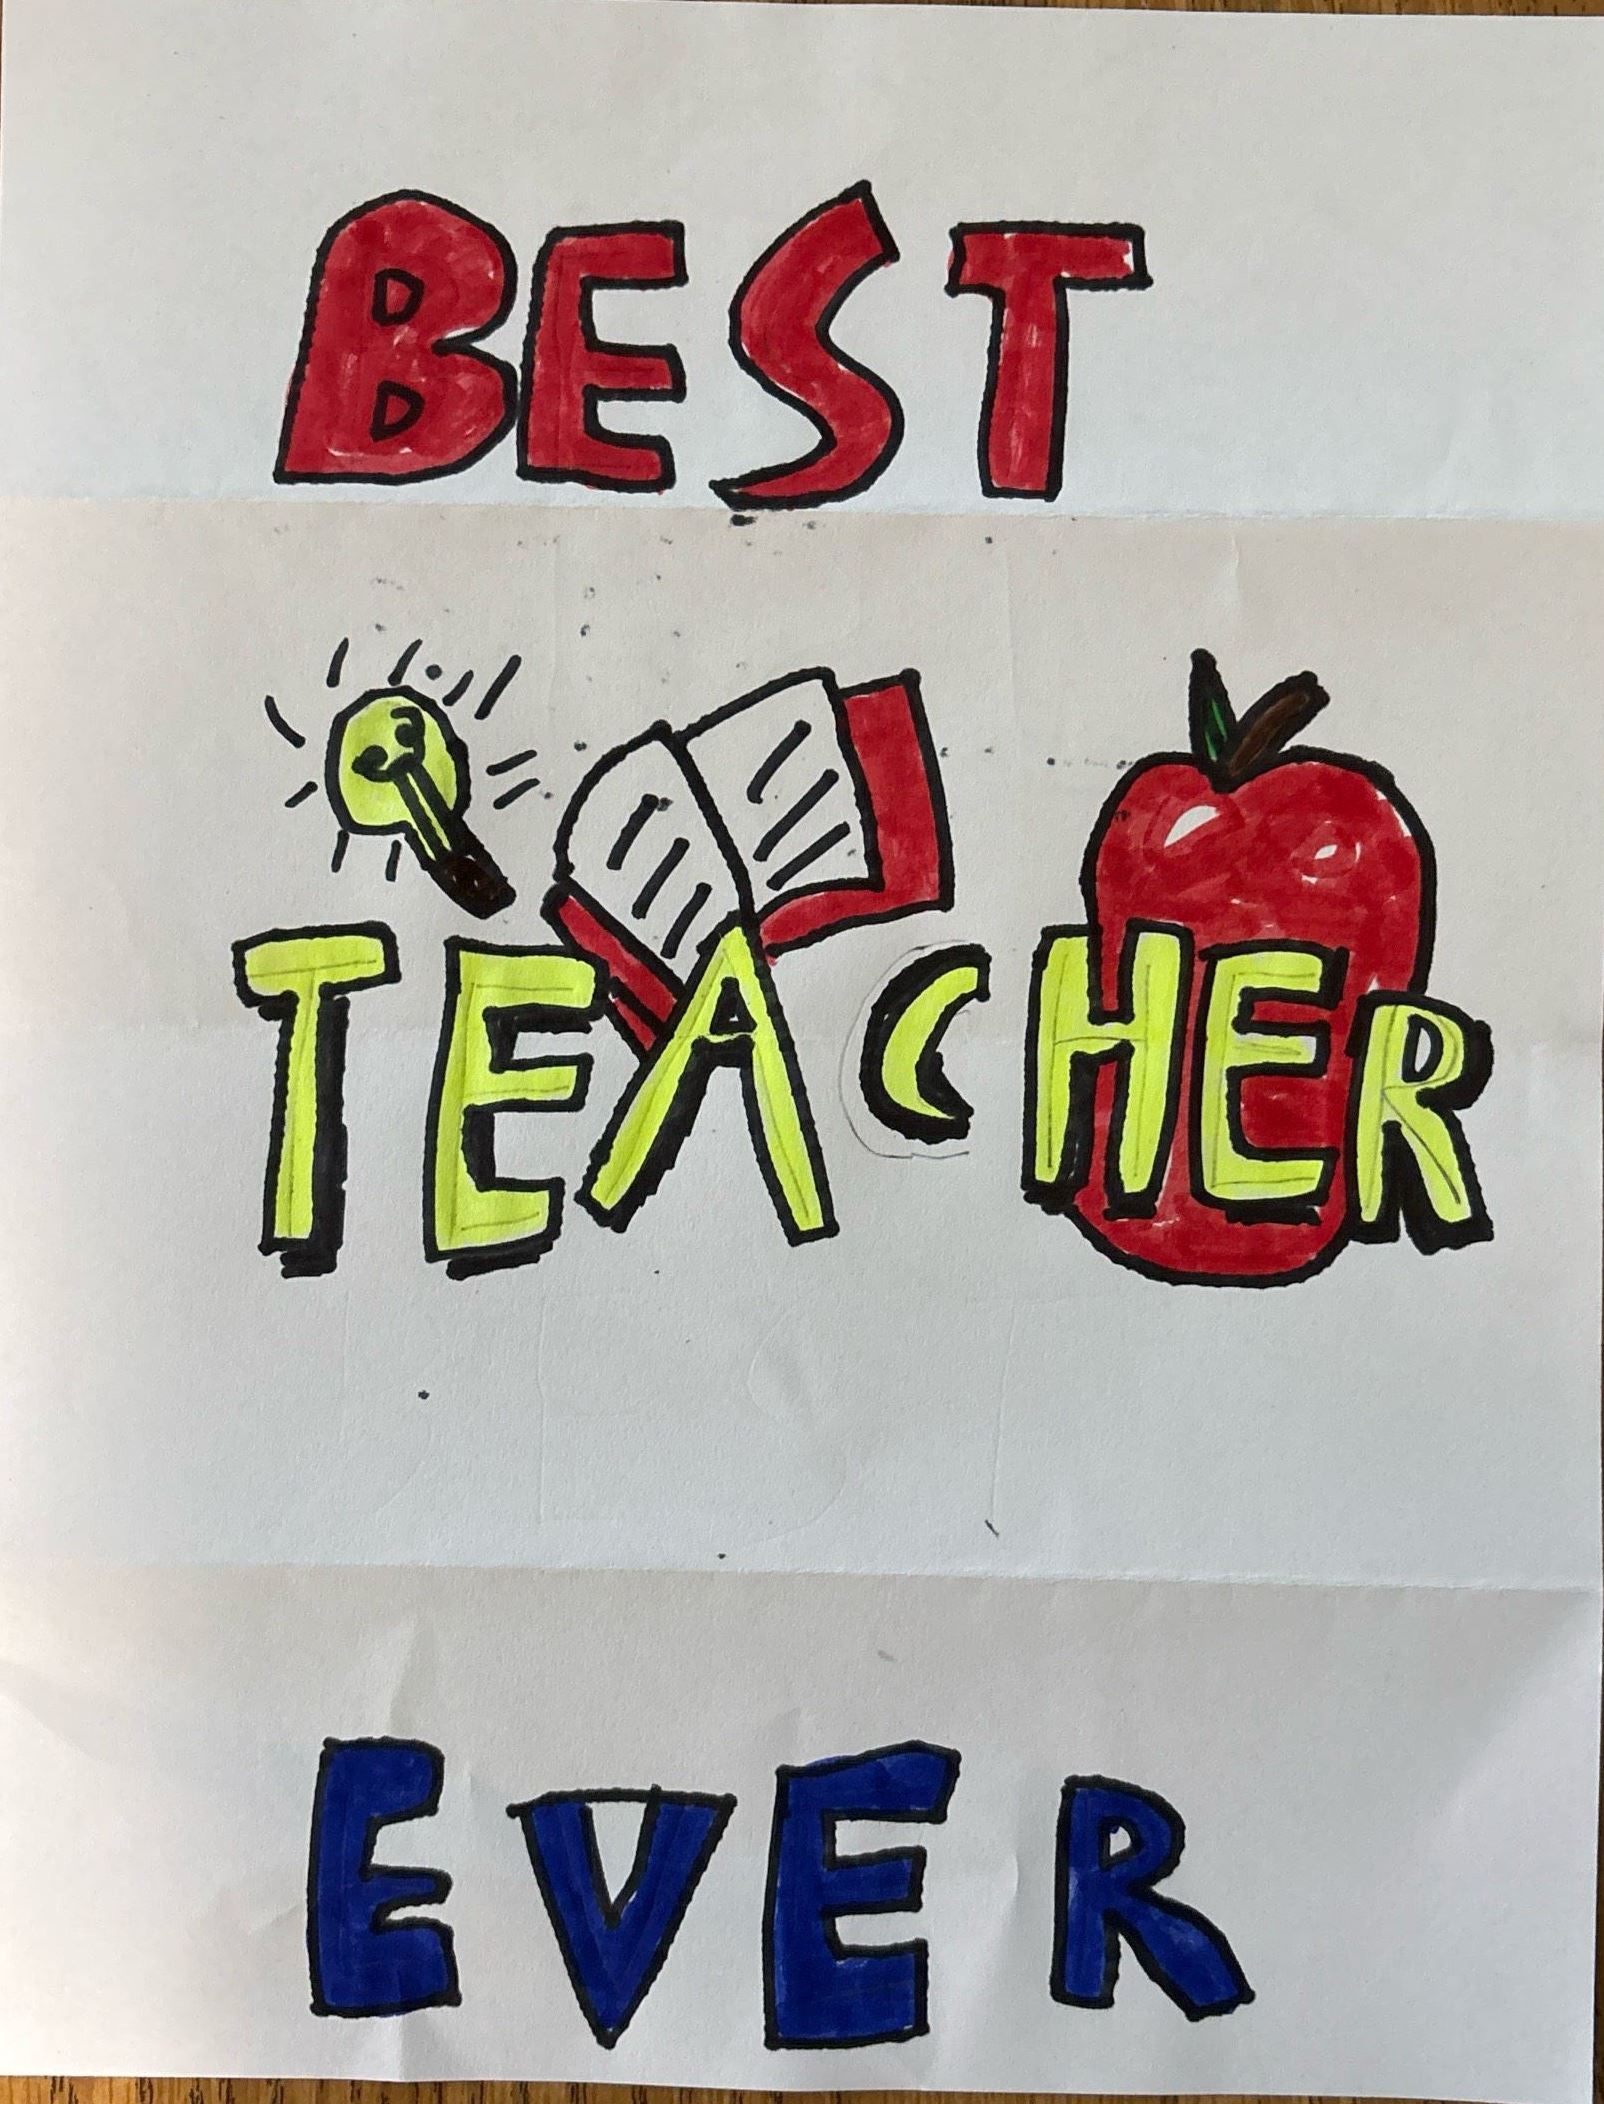 BEST
TEACHER
EVER